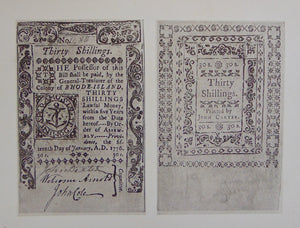 Thirty Shillings.
THE Possessor of this
Bill shall be paid, by the
General-Treasurer of the
Colony of RHODE-ISLAND,
THIRTY
SHILLINGS
Lawful Money,
within two Years
from the Date
hereof.—By Or-
der of Assem-
bly.
Providence, the
Day of January, A.D. 1776.
30s.
John Dexter
Welcome Arnold
John Cole
30s. 30s.
30s. 30s.
Thirty
Shillings.
Printed by
JOHN CARTER.
30s. 30s.